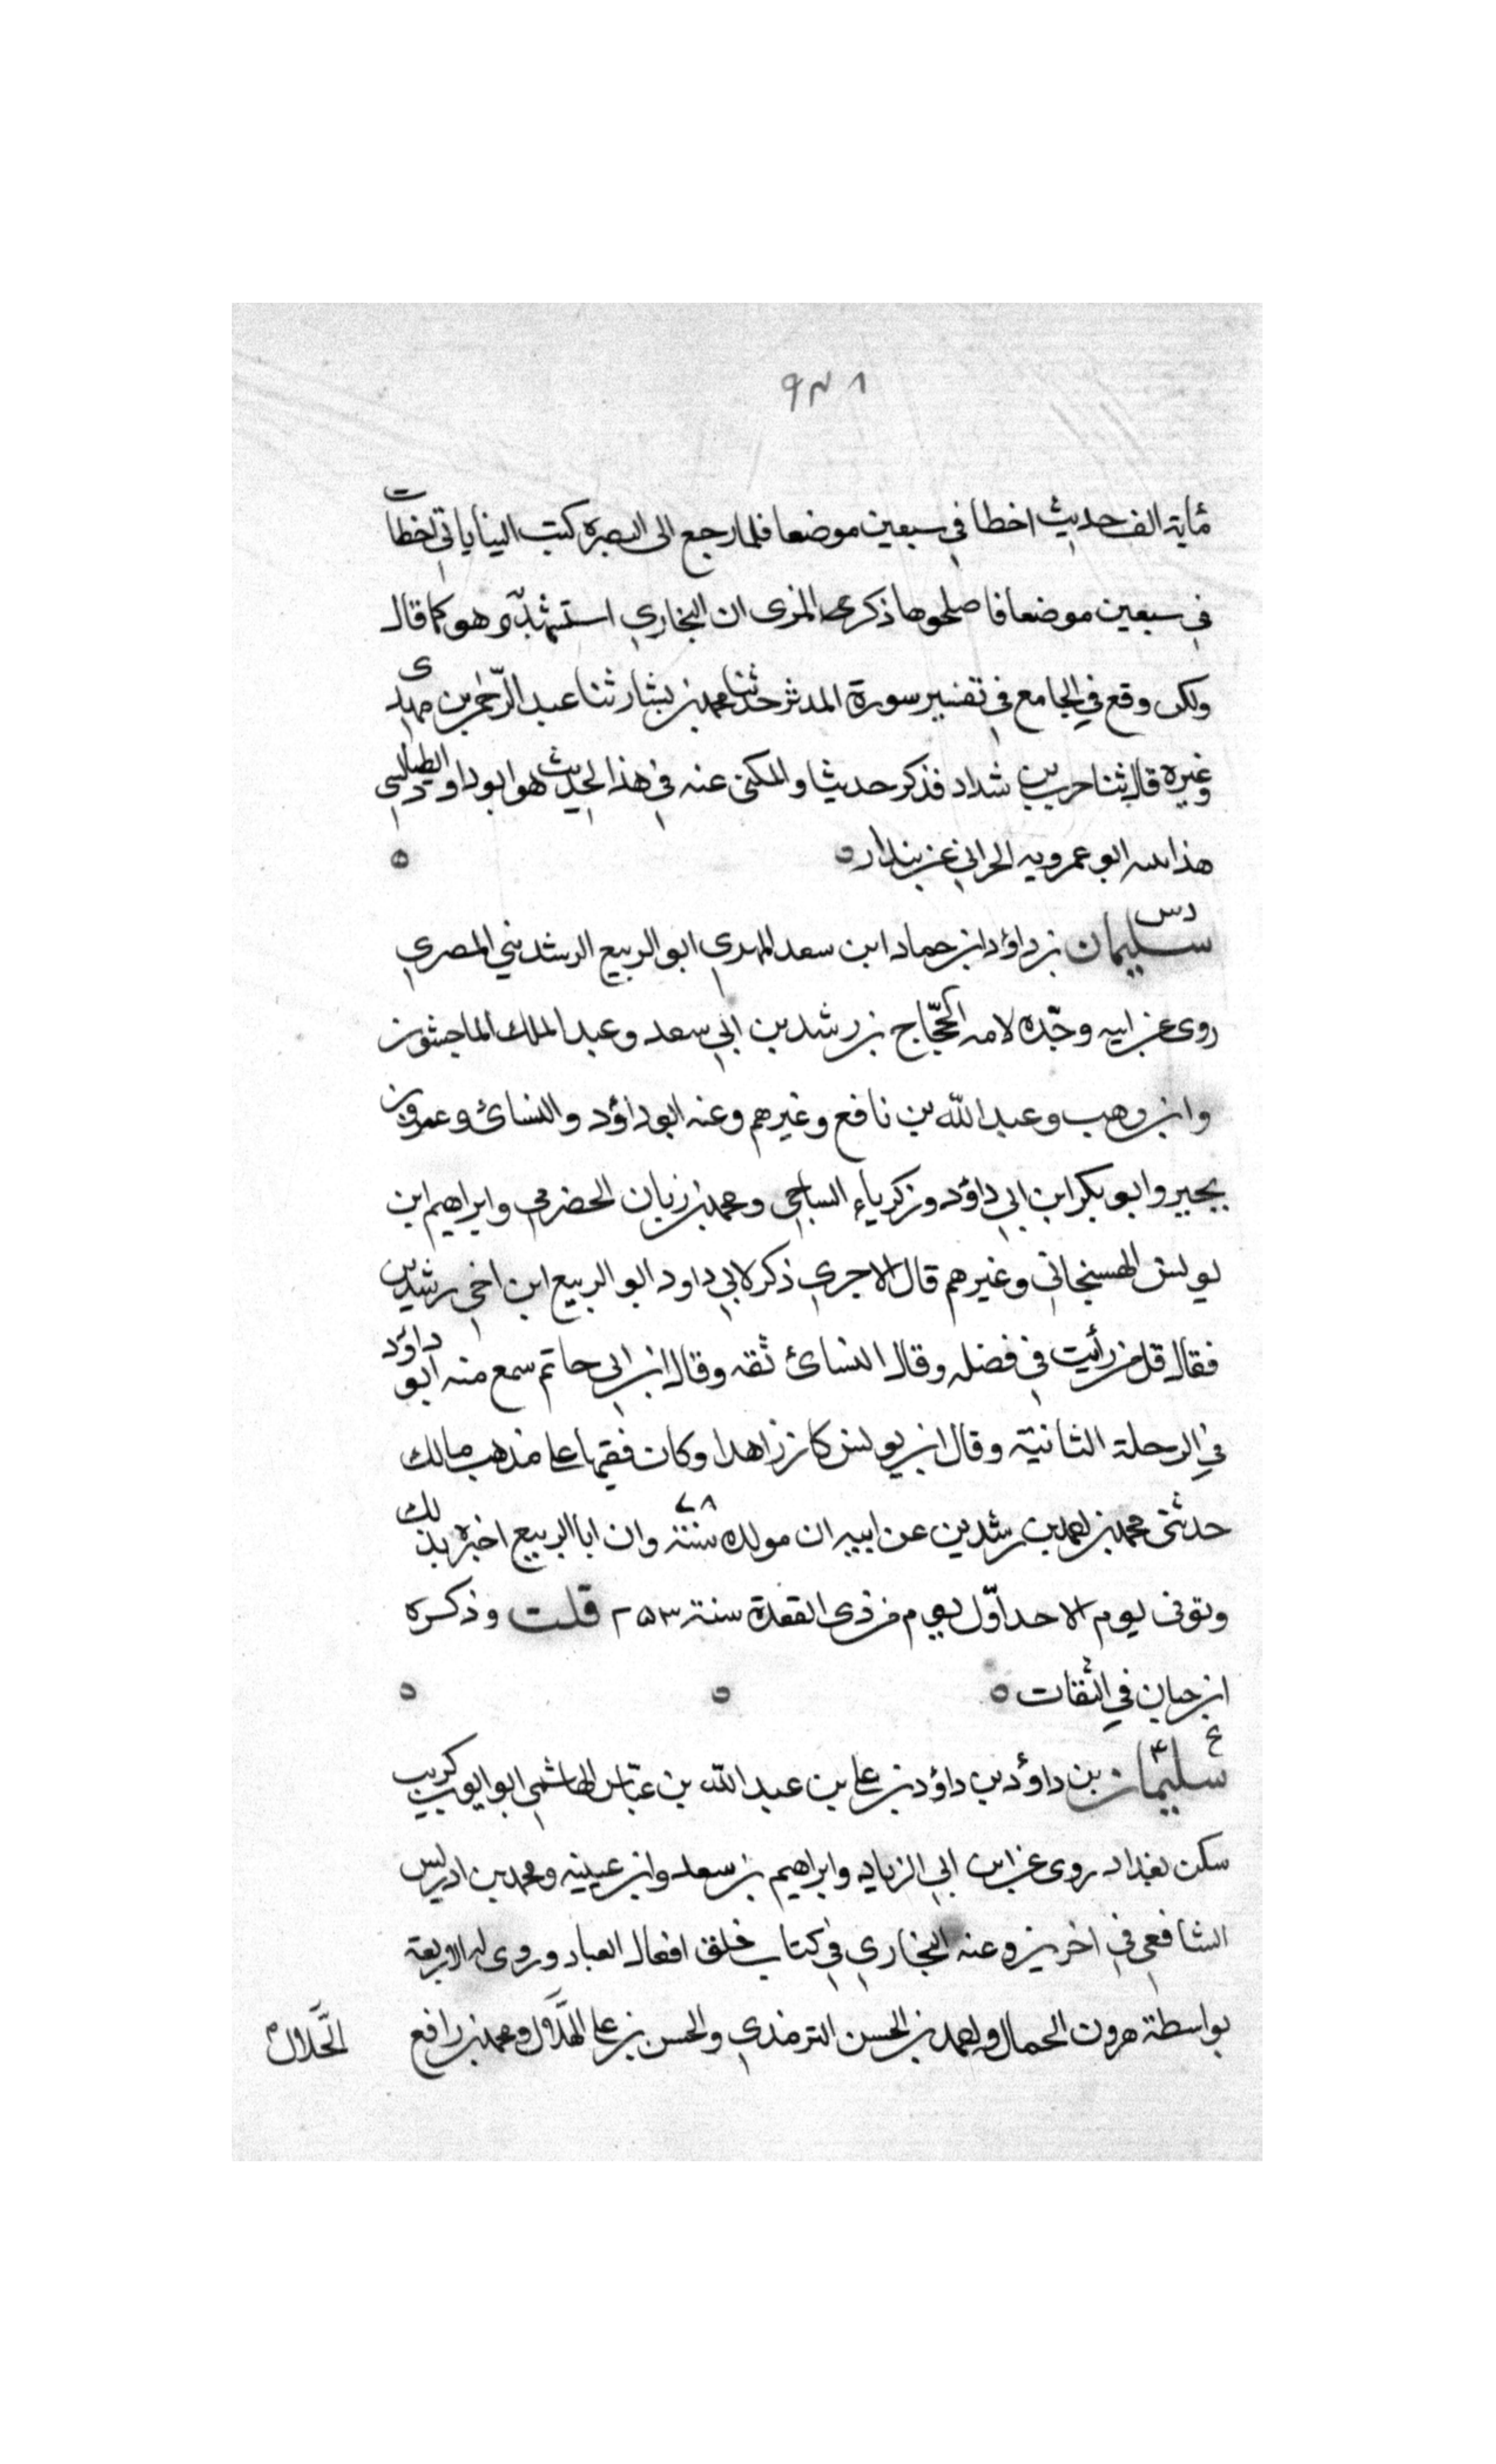 ٩٣٨
مأية الف حديث اخطا في سبعين موضعا فلما رجع الى البصرة كتب الينا باني اخطات
في سبعين موضعا فاصلحوها ذكر المزى ان البخاري استشهد به وهو كما قال
ولكن وقع في الجامع في تفسير سورة المدثر حدثنا محمد بن بشار ثنا عبد الرحمن بن مهدى
وغيره قال ثنا حرب بن شداد فذكر حديثا والمكنى عنه في هذا الحديث هو ابو داود الطيالسي
هذا ابو عمرويه الحراني عن بندار
د س
سليمان بن داؤد ابن حماد ابن سعد المهدي ابو الربيع الرشديني المصري
روى عن ابيه وجده لامه الحجاج بن رشدين ابي سعد وعبد الملك الماجشون
وابن وهب وعبد الله بن نافع وغيرهم وعنه ابو داؤد والنسائ وعمرو بن
بجير وابو بكر ابن ابي داؤد وزكرياء الساجي ومحمد بن زبان الحضرمي وابراهيم ابن
يونس الهسنجاني وغيرهم قال الاجري ذكر لابي داود ابو الربيع ابن اخي رشدين
فقال قل من رأيت في فضله وقال النسائ ثقه وقال ابن ابي حاتم سمع منه ابو داؤد
في الرحلة الثانية وقال ابن يونس كان زاهدا وكان فقيها على مذهب مالك
حدثني محمد بن احمد بن رشدين عن ابيه ان مولده سنة ٧٨ وان ابا الربيع اخبره بذلك
وتوفى يوم الاحد اوّل يوم من ذى القعدة سنة ٢٥٣ قلت وذكره
ابن حبان في الثقات
ع ٤
سليمان بن داوٗد بن داوٗد بن علي بن عبد الله بن عبّاس الهاشمي ابو ايوب كريب
سكن بغداد روى عن ابن ابي الزياد وابراهيم بن سعد وابن عيينه ومحمد بن ادريس
الشافعي في اخرين وعنه البخاري في كتاب خلق افعال العباد وروى له الاربعة
بواسطة هرون الحمال واحمد بن الحسن الترمذي والحسن بن علي الهلال ومحمد بن رافع
الحلال